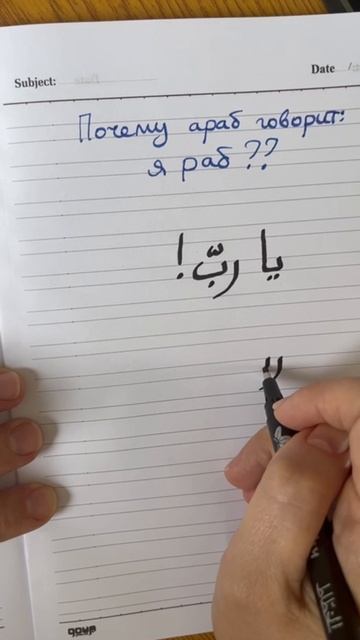 Subject:
Date
Почему араб говорит:
я раб??
يا ربّ!